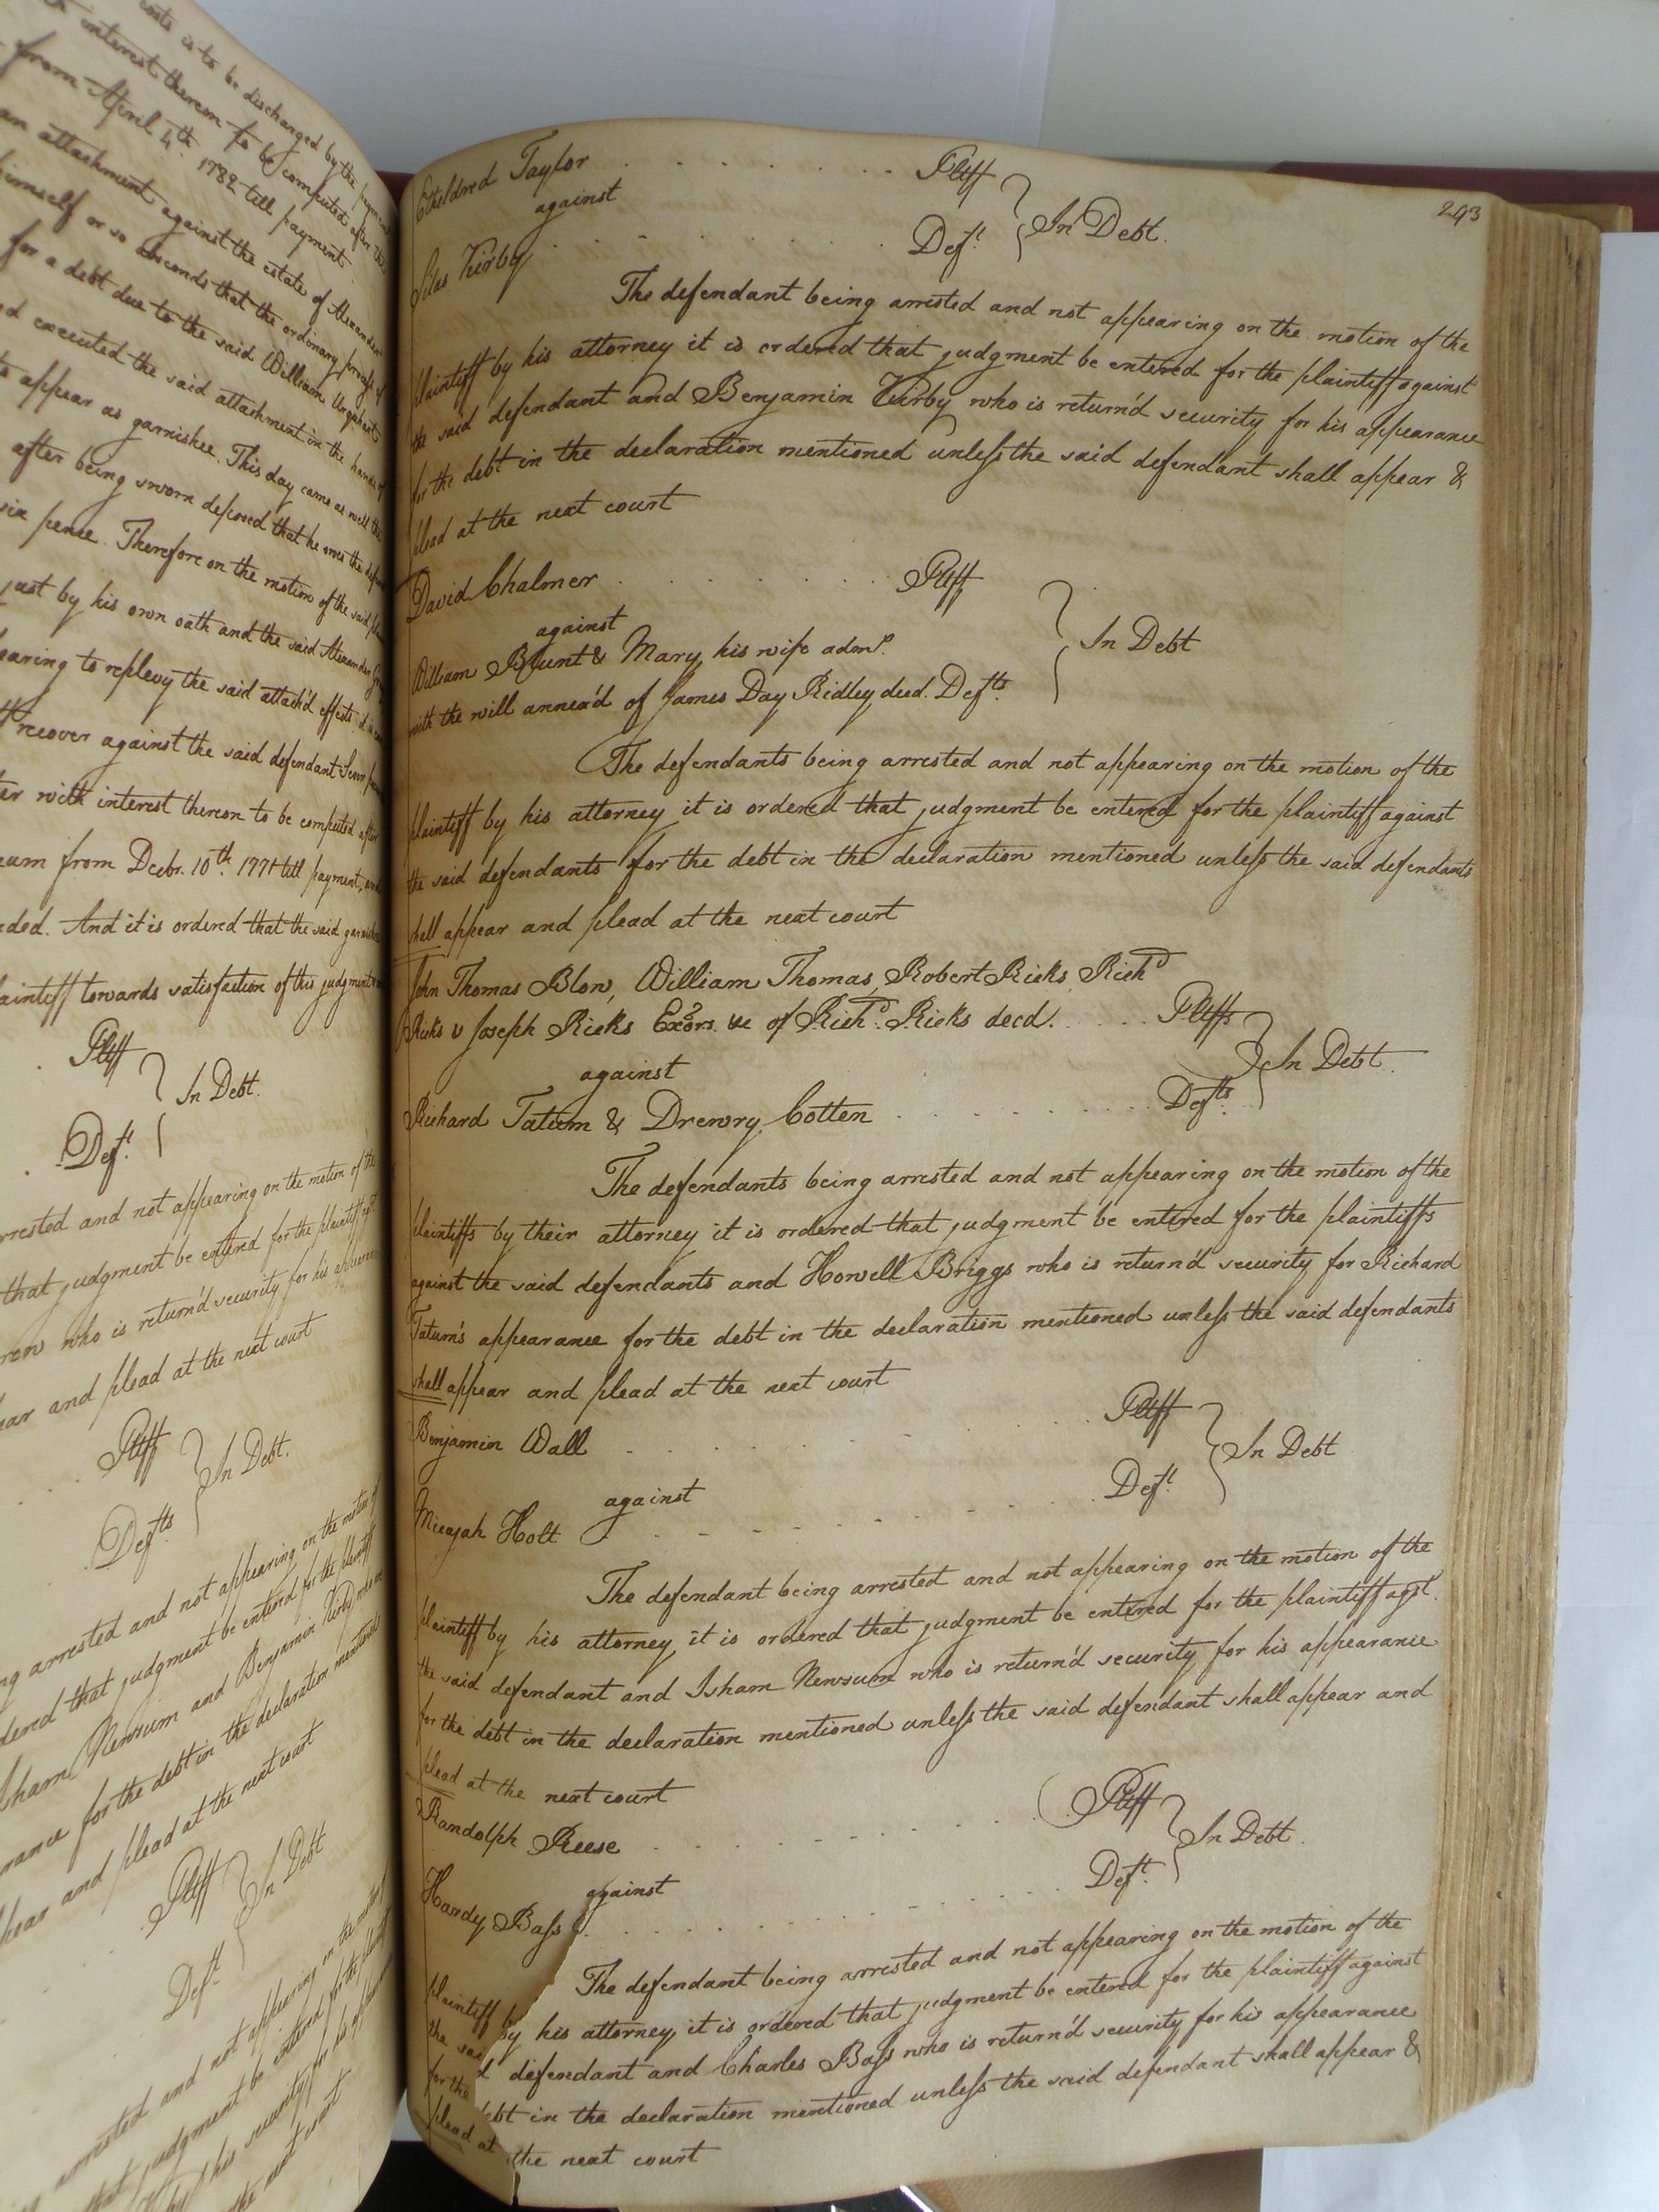 costs is to be discharged by the
interest thereon to be computed after the
from April 4th. 1782 till payment.
an attachment against the estate of Alexander
himself or so absconds that the ordinary process of
for a debt due to the said William Urquhart
executed the said attachment in the hands of
to appear as garnishee. This day came as well the
after being sworn deposed that he owes the
six pence. Therefore on the motion of the said
just by his own oath and the said Alexander
to replevy the said attach'd effects it is
recover against the said defendant Seven
with interest thereon to be computed after
from Decbr. 10th. 1771 till payment, and
And it is ordered that the said
towards satisfaction of this judgment
Pltff
In Debt.
Deft.
and not appearing on the motion of the
that judgment be entered for the plaintiff
who is return'd security for his appearance
and plead at the next court
Pltff
In Debt.
Defts
arrested and not appearing on the motion of
that judgment be entered for the plaintiff
Isham Newsum and Benjamin Kirby
for the debt in the declaration mentioned
and plead at the next court
Pltff
In Debt
Deft
arrested and not appearing on the motion
that judgment be entered for the plaintiff
security for his appearance
the next court
293
Etheldred Taylor . . . . . . . Pltff
against
In Debt.
Silas Kirby . . . . . . . Deft.
The defendant being arrested and not appearing on the motion of the
plaintiff by his attorney it is ordered that judgment be entered for the plaintiff against
the said defendant and Benjamin Kirby who is return'd security for his appearance
for the debt in the declaration mentioned unless the said defendant shall appear &
plead at the next court
David Chalmer . . . . . . . Pltff
against
In Debt
William Blunt & Mary his wife admr.
with the will annex'd of James Day Ridley decd. Defts.
The defendants being arrested and not appearing on the motion of the
plaintiff by his attorney it is ordered that judgment be entered for the plaintiff against
the said defendants for the debt in the declaration mentioned unless the said defendants
shall appear and plead at the next court
John Thomas Blow, William Thomas, Robert Ricks, Richd
Ricks & Joseph Ricks Exors. &c of Richd. Ricks decd. . . . . Pltffs
against
In Debt.
Richard Tatum & Drewry Cotten . . . . . . . Defts.
The defendants being arrested and not appearing on the motion of the
plaintiffs by their attorney it is ordered that judgment be entered for the plaintiffs
against the said defendants and Howell Briggs who is return'd security for Richard
Tatum's appearance for the debt in the declaration mentioned unless the said defendants
shall appear and plead at the next court
Benjamin Wall . . . . . . . Pltff
against
In Debt
Micajah Holt . . . . . . . Deft.
The defendant being arrested and not appearing on the motion of the
plaintiff by his attorney it is ordered that judgment be entered for the plaintiff agst.
the said defendant and Isham Newsum who is return'd security for his appearance
for the debt in the declaration mentioned unless the said defendant shall appear and
plead at the next court
Randolph Reese . . . . . . . Pltff
against
In Debt.
Hardy Bass . . . . . . . Deft.
The defendant being arrested and not appearing on the motion of the
plaintiff by his attorney it is ordered that judgment be entered for the plaintiff against
the said defendant and Charles Bass who is return'd security for his appearance
for the debt in the declaration mentioned unless the said defendant shall appear &
plead at the next court